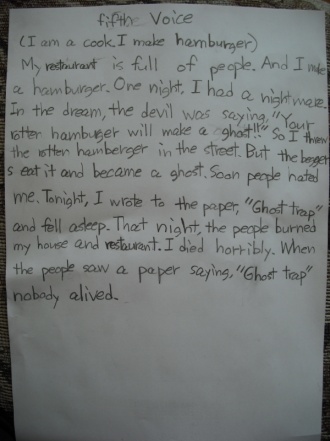 fifth Voice
(I am a cook. I make hamburger)
My restaurant is full of people. And I make
a hamburger. One night, I had a nightmare.
In the dream, the devil was saying, "Your
rotten hamburger will make a ghost!!" So I threw
the rotten hamberger in the street. But the begger
s eat it and became a ghost. Soon people hated
me. Tonight, I wrote to the paper, "Ghost trap"
and fell asleep. That night, the people burned
my house and restaurant. I died horribly. When
the people saw a paper saying, "Ghost trap"
nobody alived.